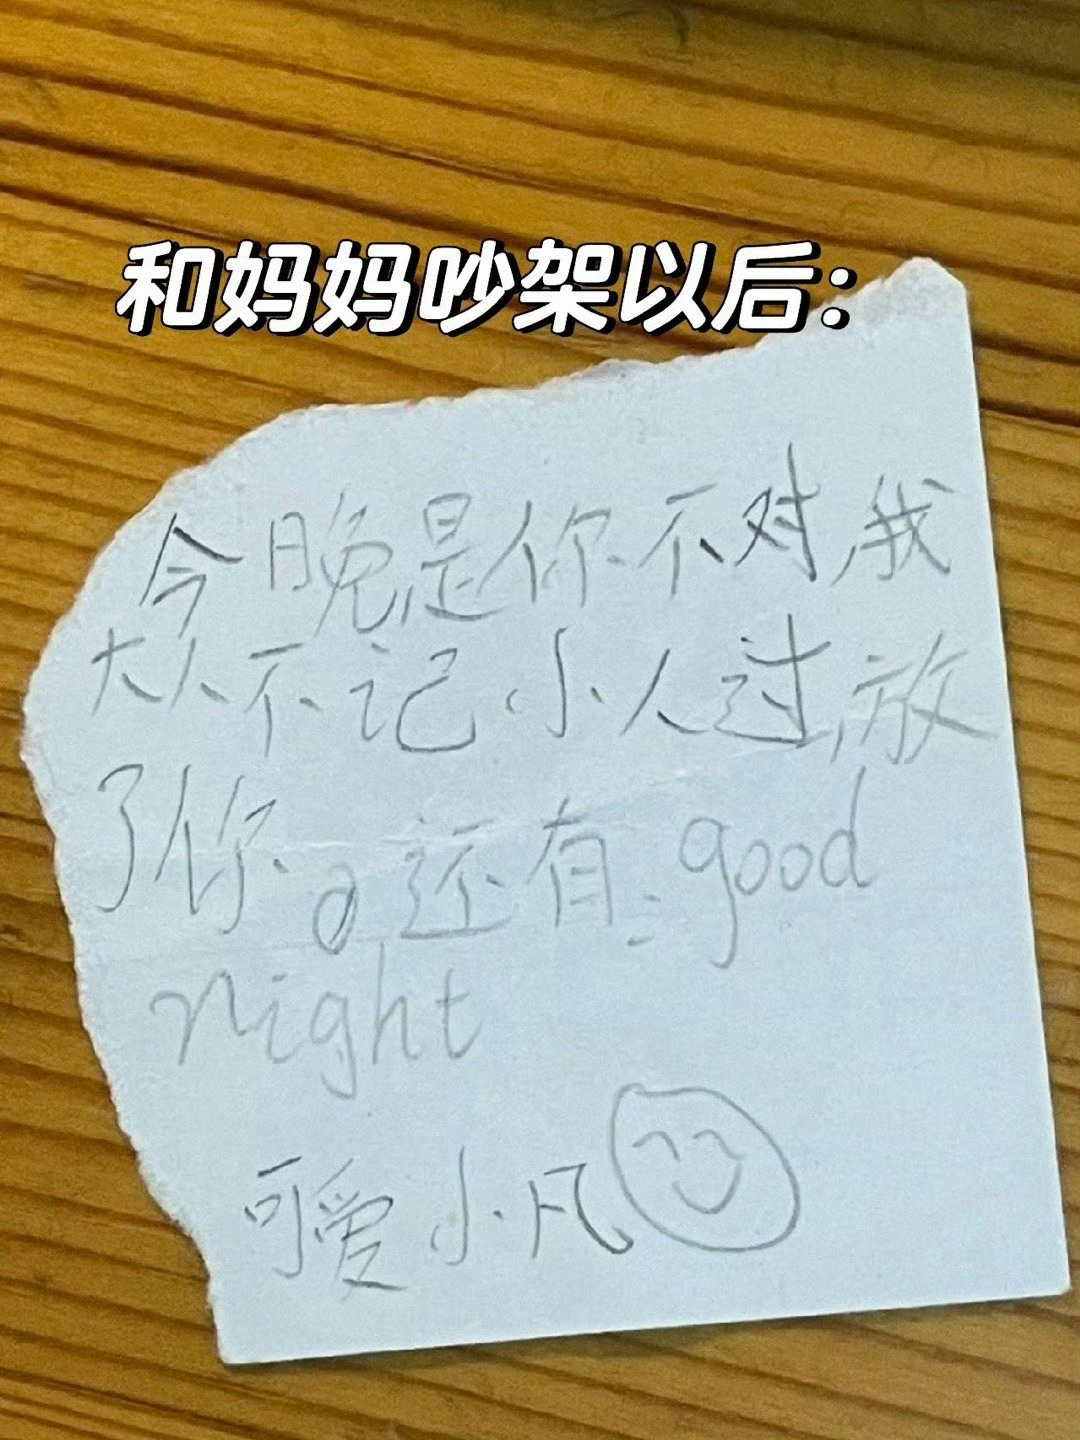 和妈妈吵架以后：
今晚是你不对,我
大人不记小人过,放
了你。还有：good
night
可爱小凡